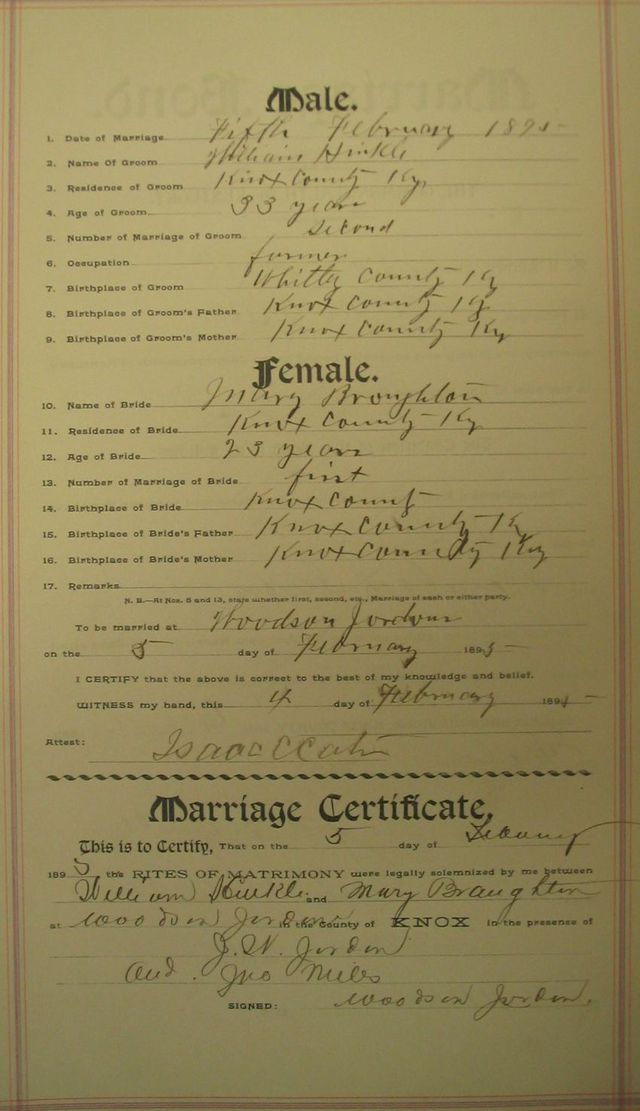 Male.
1. Date of Marriage Fifth February 1895
2. Name Of Groom William Hinkle
3. Residence of Groom Knox County Ky,
4. Age of Groom 33 years
5. Number of Marriage of Groom second
6. Occupation farmer
7. Birthplace of Groom Whitley County Ky
8. Birthplace of Groom's Father Knox County Ky
9. Birthplace of Groom's Mother Knox County Ky
Female.
10. Name of Bride Mary Broughton
11. Residence of Bride Knox County Ky
12. Age of Bride 23 years
13. Number of Marriage of Bride first
14. Birthplace of Bride Knox County
15. Birthplace of Bride's Father Knox County Ky
16. Birthplace of Bride's Mother Knox County Ky
17. Remarks
N. B.—At Nos. 5 and 13, state whether first, second, etc., Marriage of each or either party.
To be married at Woodson Jordons
on the 5 day of February 1895
I CERTIFY that the above is correct to the best of my knowledge and belief.
WITNESS my hand, this 4 day of February 189
Attest: Isaac
Marriage Certificate.
This is to Certify, That on the 5 day of
1895 the RITES OF MATRIMONY were legally solemnized by me between
William Hinkle and Mary Braughton
at Woodson Jordons in the County of KNOX in the presence of
J. W. Jordon
and Jno Miles
SIGNED: Woodson Jordon.